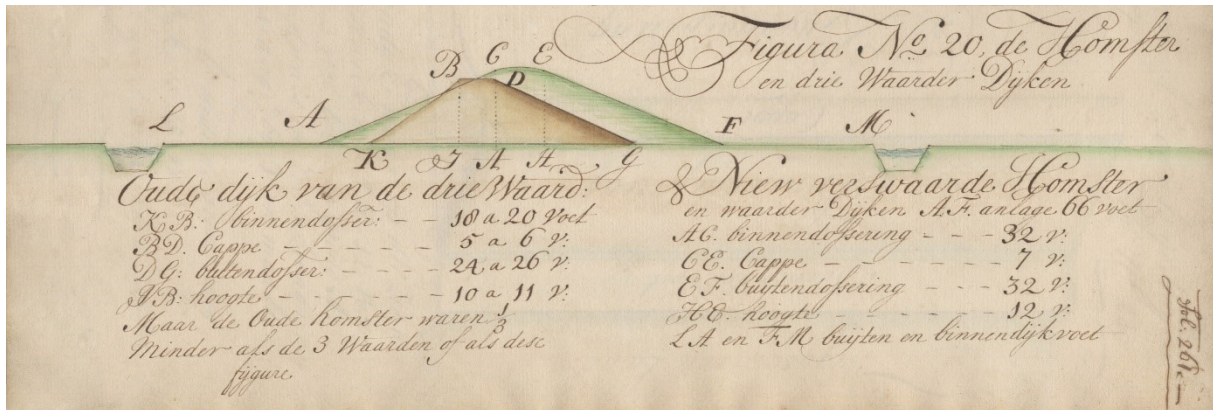 Figura No. 20, de Homster
en drie Waarder Dijken
B C E
D
L A F M
K J A H G
Oude dijk van de drie Waard:
K.B: binnendosser: - - 18 a 20 voet
B.D. Cappe - - - - - - 5 a 6 v:
D G: buitendosser: - - - - - 24 a 26 v:
J.B: hoogte - - - - - - 10 a 11 v:
Maar de Oude homster waren 1/3
Minder als de 3 Waarden of als dese
fijgure.
& Niew verswaarde Homster
en waarder Dijken A.F. anlage 66 voet
A.C. binnendossering - - - 32 v:
C E. Cappe - - - - - - 7 v:
E.F. buytendossering - - - - 32 v:
H.E. hoogte - - - - - - 12 v:
L A en F M buijten en binnendijkvoet
fol: 261